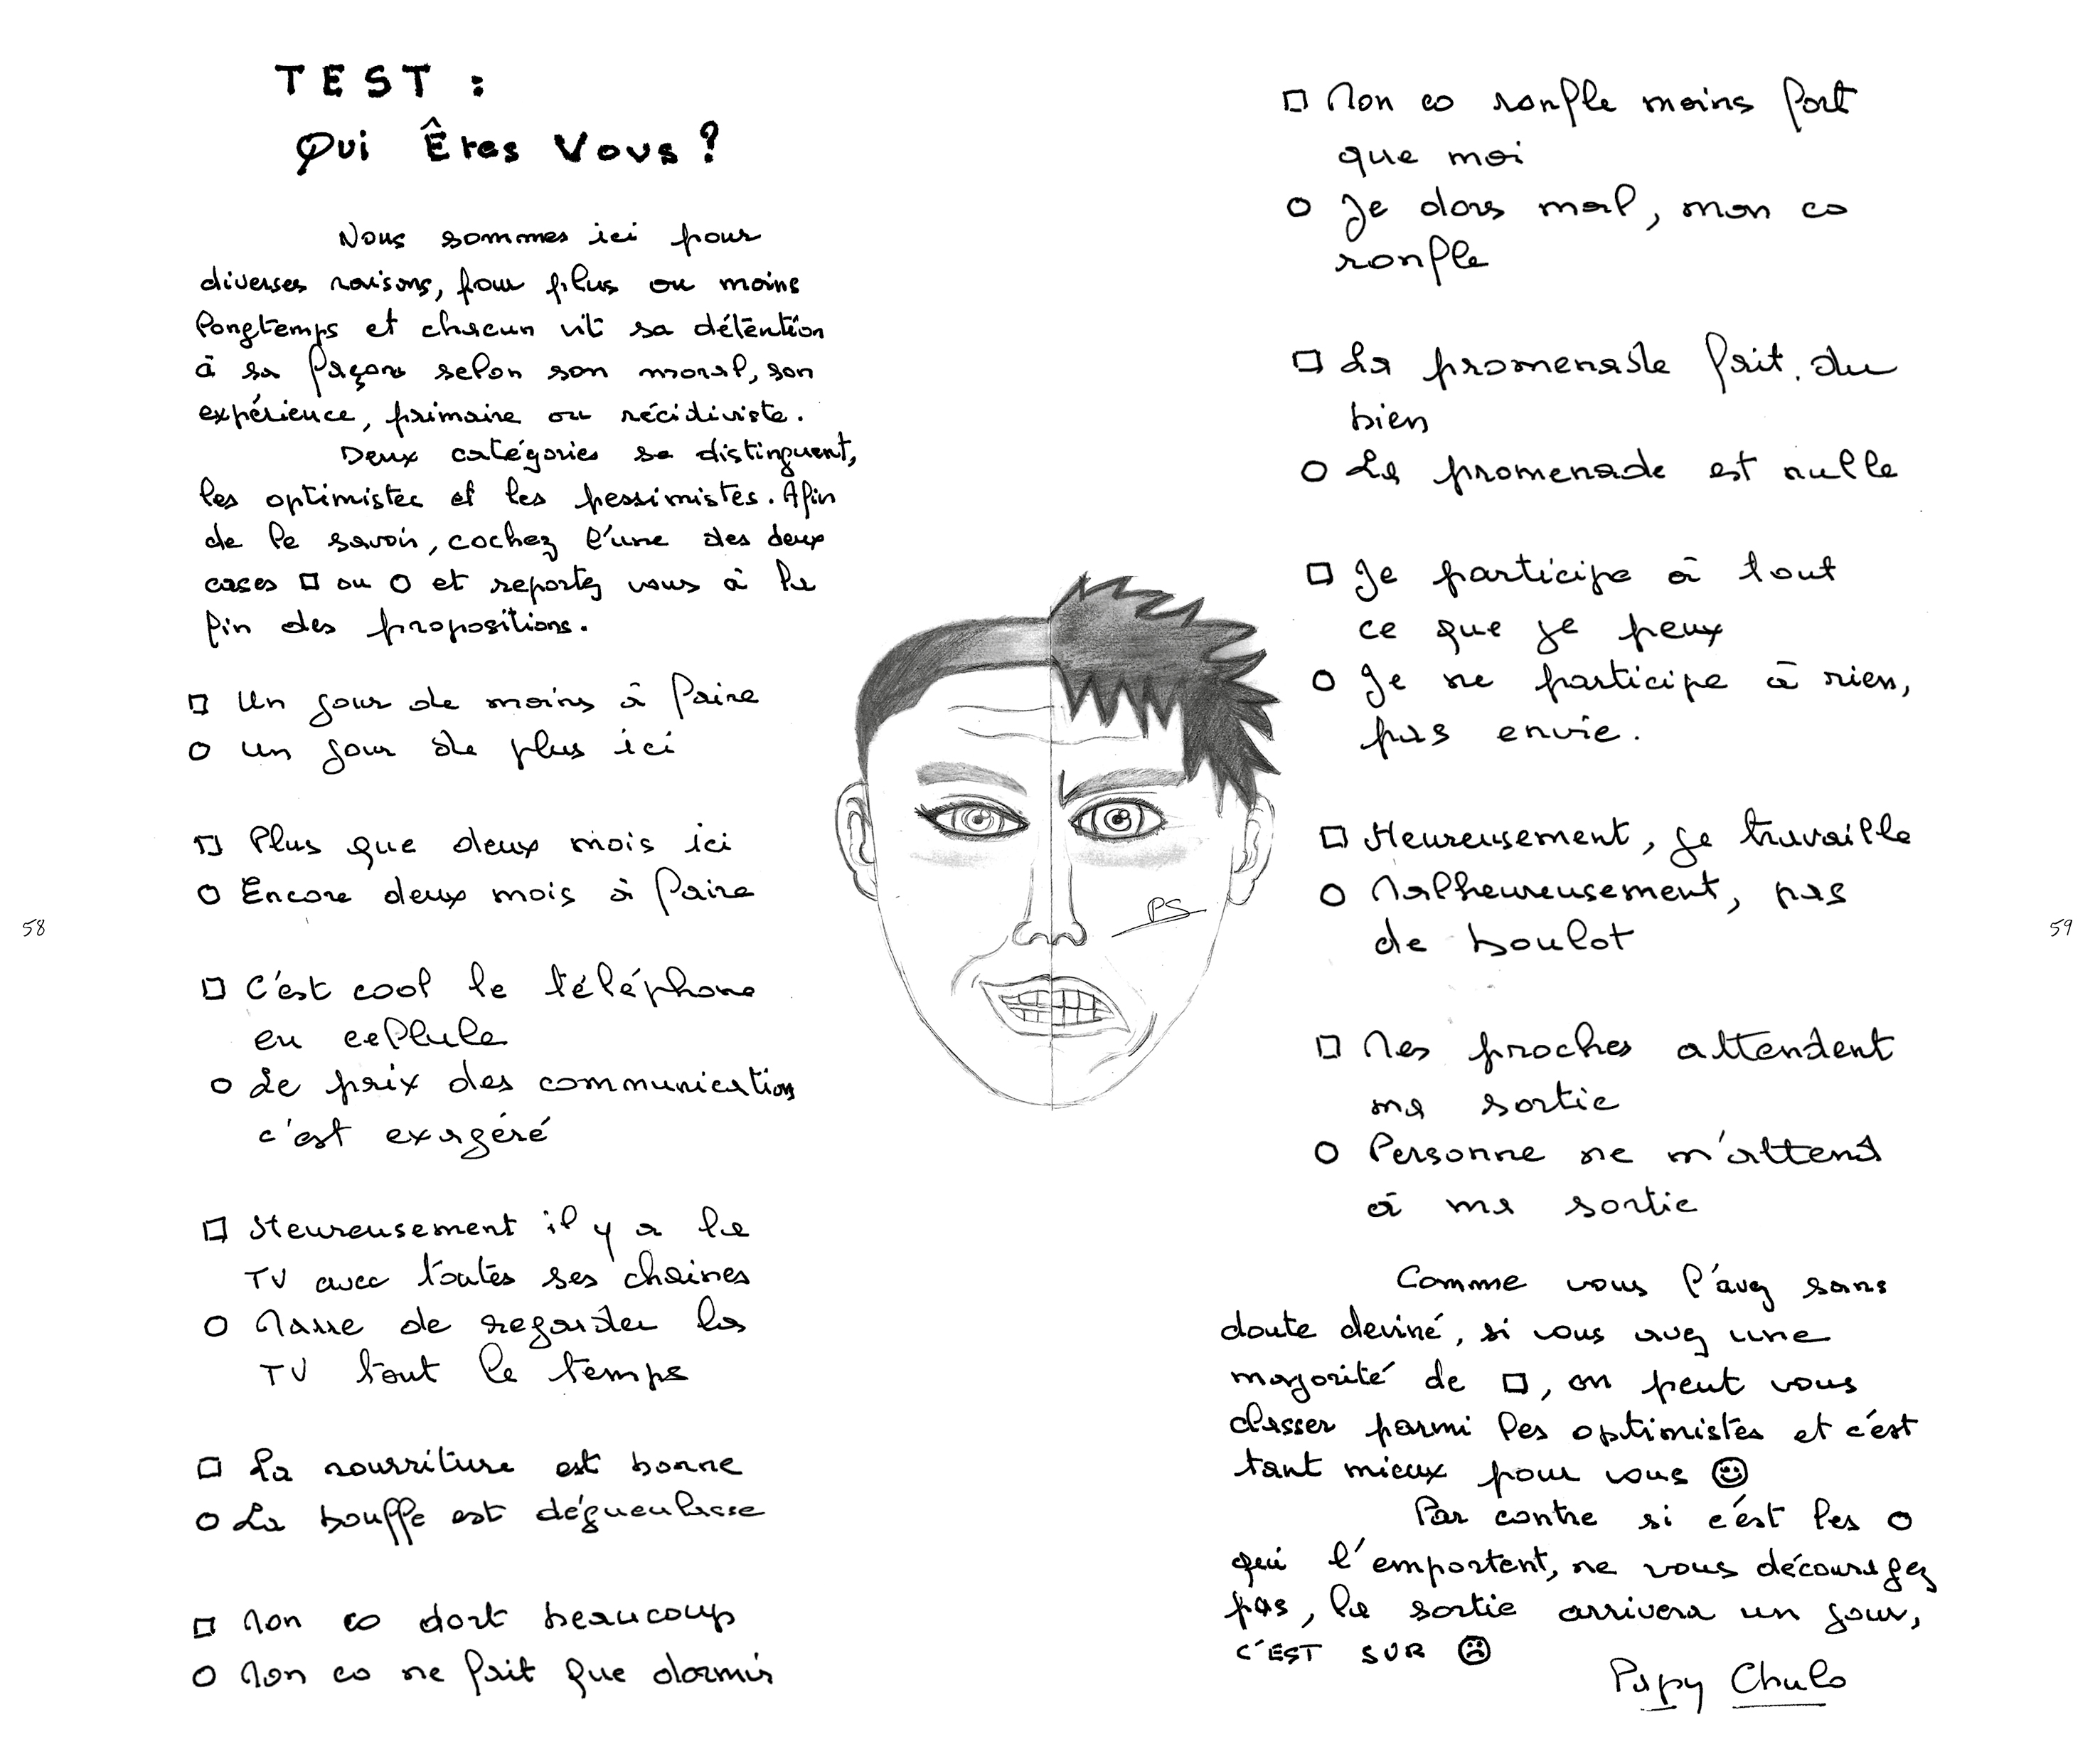 TEST :
Qui Êtes Vous ?
Nous sommes ici pour
diverses raisons, pour plus ou moins
longtemps et chacun vit sa détention
à sa façon selon son moral, son
expérience, primaire ou récidiviste.
Deux catégories se distinguent,
les optimistes et les pessimistes. Afin
de le savoir, cochez l'une des deux
cases □ ou O et reportez vous à la
fin des propositions.
□ Un jour de moins à faire
O Un jour de plus ici
□ Plus que deux mois ici
O Encore deux mois à faire
□ C'est cool le téléphone
en cellule
O Le prix des communications
c'est exagéré
□ Heureusement il y a la
TV avec toutes ses chaines
O Marre de regarder la
TV tout le temps
□ La nourriture est bonne
O La bouffe est dégueulasse
□ Mon co dort beaucoup
O Mon co ne fait que dormir
58
□ Mon co ronfle moins fort
que moi
O Je dors mal, mon co
ronfle
□ La promenade fait du
bien
O La promenade est nulle
□ Je participe à tout
ce que je peux
O Je ne participe à rien,
pas envie.
□ Heureusement, je travaille
O Malheureusement, pas
de boulot
□ Mes proches attendent
ma sortie
O Personne ne m'attend
à ma sortie
Comme vous l'avez sans
doute deviné, si vous avez une
majorité de □, on peut vous
classer parmi les optimistes et c'est
tant mieux pour vous ☺
Par contre si c'est les O
qui l'emportent, ne vous découragez
pas, la sortie arrivera un jour,
C'EST SUR ☹
Papy Chulo
59
PS